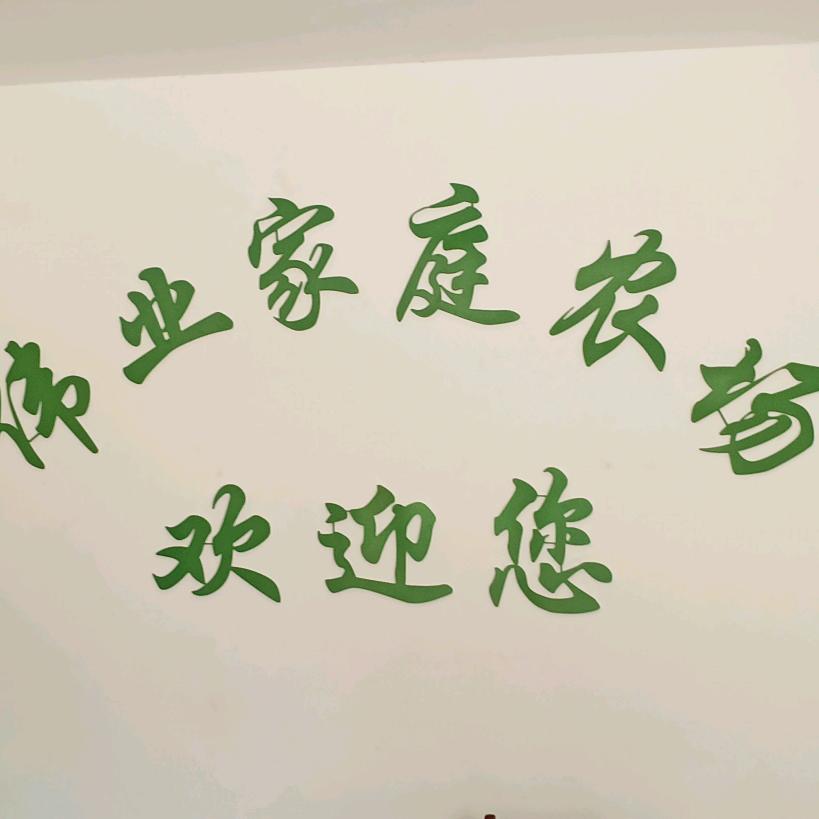 伟业家庭农场
欢迎您